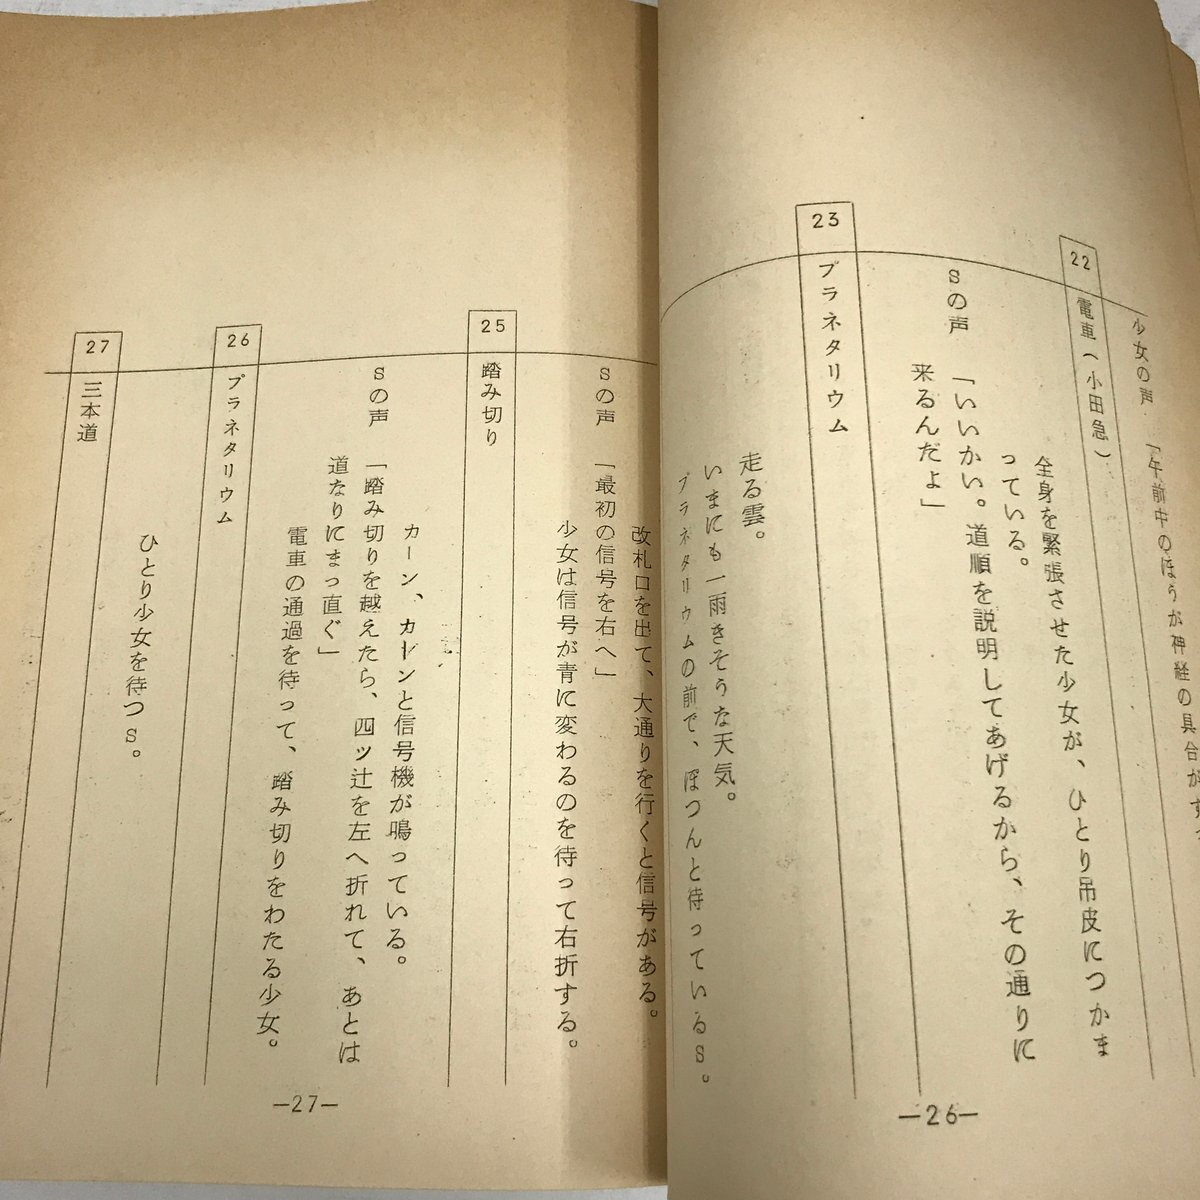 少女の声 「午前中のほうが神経の具合が
22 電車(小田急)
全身を緊張させた少女が、ひとり吊皮につかま
っている。
Sの声 「いいかい。道順を説明してあげるから、その通りに
来るんだよ」
23 プラネタリウム
走る雲。
いまにも一雨きそうな天気。
プラネタリウムの前で、ぽつんと待っているS。
—26—
改札口を出て、大通りを行くと信号がある。
Sの声 「最初の信号を右へ」
少女は信号が青に変わるのを待って右折する。
25 踏み切り
カーン、カーンと信号機が鳴っている。
Sの声 「踏み切りを越えたら、四ッ辻を左へ折れて、あとは
道なりにまっ直ぐ」
電車の通過を待って、踏み切りをわたる少女。
26 プラネタリウム
ひとり少女を待つS。
27 三本道
—27—